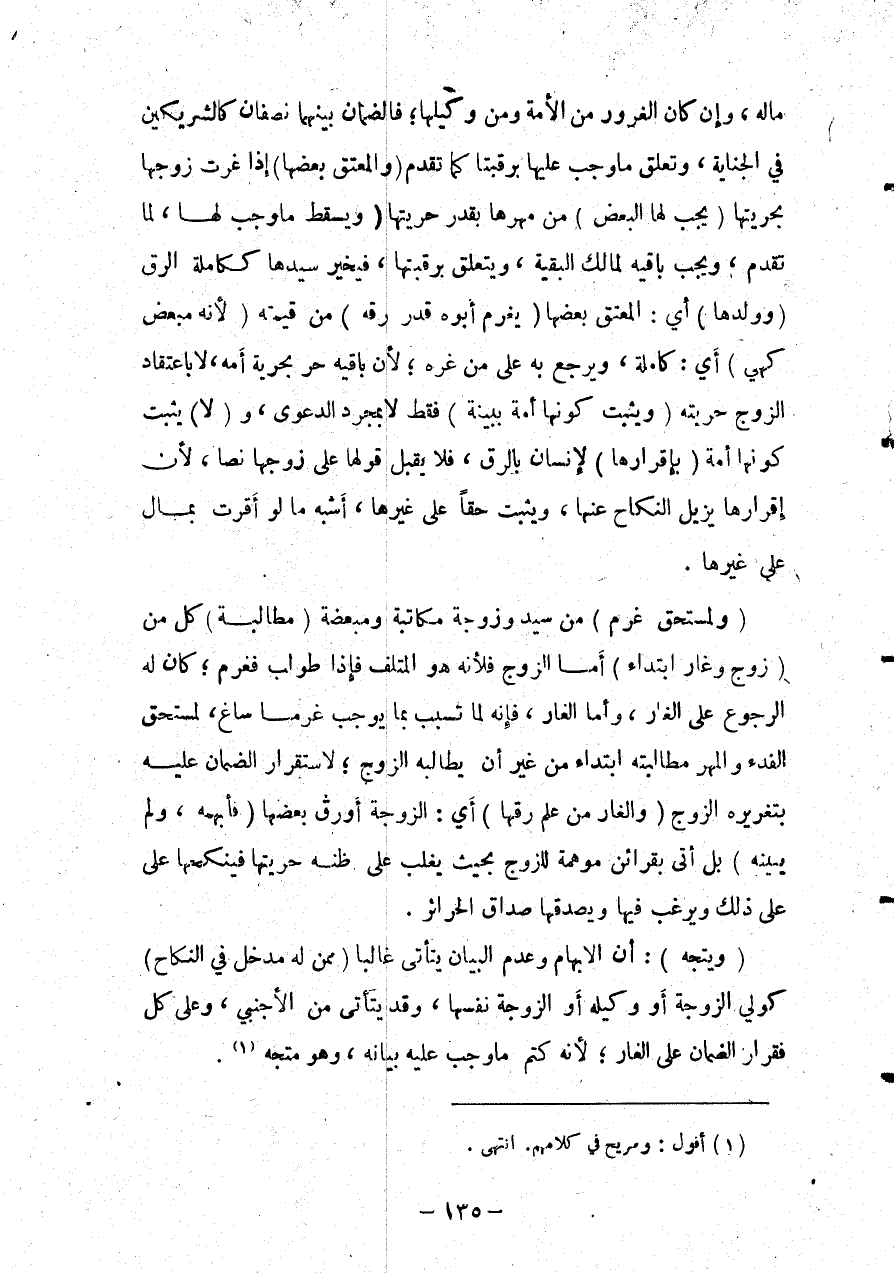 ماله ، وإن كان الغرور من الأمة ومن وكيلها ؛ فالضمان بينهما نصفان كالشريكين
في الجناية ، وتعلق ماوجب عليها برقبتا كما تقدم (والمعتق بعضها) إذا غرت زوجها
بحريتها ( يجب لها البعض ) من مهرها بقدر حريتها ( ويسقط ماوجب لهـا ، لما
تقدم ، ويجب باقيه لمالك البقية ، ويتعلق برقبتها ، فيخير سيدها ككاملة الرق
(وولدها ) أي : المعتق بعضها ( يغرم أبوه قدر رقه ) من قيمته ( لأنه مبعض
كهي ) أي : كاملة ، ويرجع به على من غره ؛ لأن باقيه حر بحرية أمه، لاباعتقاد
الزوج حريته ( ويثبت كونها أمة ببينة ) فقط لابمجرد الدعوى ، و ( لا ) يثبت
كونها أمة ( بإقرارها ) لإنسان بالرق ، فلا يقبل قولها على زوجها نصا ، لأن
إقرارها يزيل النكاح عنها ، ويثبت حقاً على غيرها ، أشبه ما لو أقرت بمـال
على غيرها .
( ولمستحق غرم ) من سيد وزوجة مكاتبة ومبعضة ( مطالبـة ) كل من
( زوج وغار ابتداء ) أمـا الزوج فلأنه هو المتلف فإذا طولب فغرم ؛ كان له
الرجوع على الغار ، وأما الغار ، فإنه لما تسبب بما يوجب غرمـا ساغ، لمستحق
الفدء والمهر مطالبته ابتداء من غير أن يطالبه الزوج ؛ لاستقرار الضمان عليـه
بتغريره الزوج ( والغار من علم رقها ) أي : الزوجة أورق بعضها ( فأبهمه ، ولم
يبينه ) بل أتى بقرائن موهمة للزوج بحيث يغلب على ظنـه حريتها فينكحها على
على ذلك ويرغب فيها ويصدقها صداق الحرائر .
( ويتجه ) : أن الابهام وعدم البيان يتأتى غالبا ( ممن له مدخل في النكاح)
كولي الزوجة أو وكيله أو الزوجة نفسها ، وقد يتأتى من الأجنبي ، وعلى كل
فقرار الضمان على الغار ؛ لأنه كتم ماوجب عليه بيانه ، وهو متجه (١) .
(١) أقول : وصريح في كلامهم. انتهى .
– ١٣٥ –